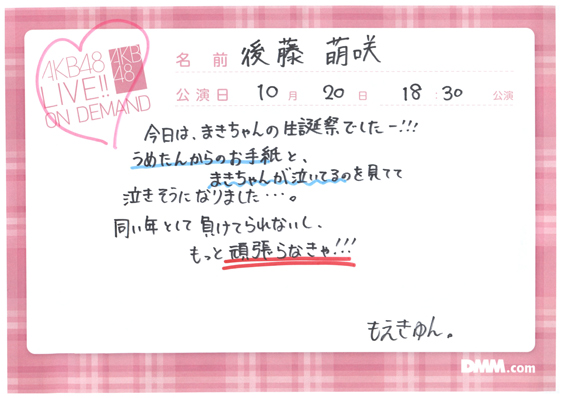 AKB48
LIVE!!
ON DEMAND
AKB
48
名前 後藤 萌咲
公演日 10月 20日 18:30 公演
今日は、まきちゃんの生誕祭でしたー!!!
うめたんからのお手紙と、
まきちゃんが泣いてるのを見てて
泣きそうになりました・・・。
同い年として負けてられないし、
もっと頑張らなきゃ!!!
もえきゅん。
DMM.com